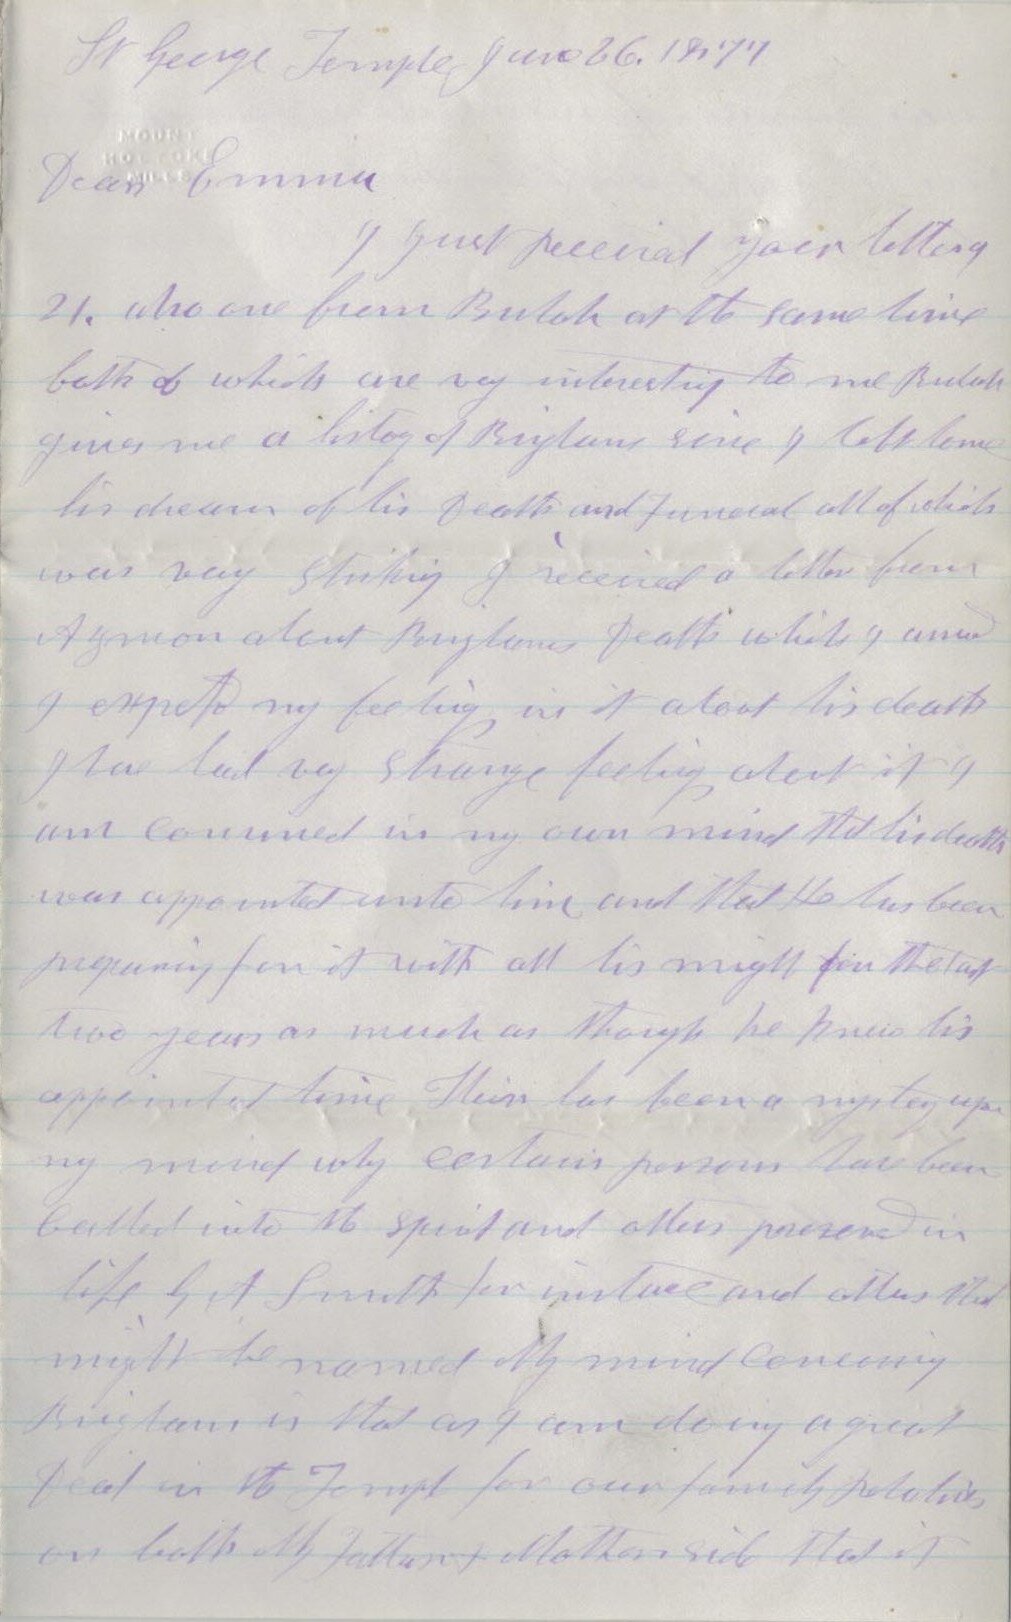 St George Temple, June 26. 1877
MOUNT
HOLYOKE
MILLS
Dear Emma
I just received your letter of
21. also one from Bulah at the same time
both of which are very interesting to me Bulah
gives me a histoy of Brighams since I left home
his dream of his Death and Funeral all of which
was very striking I received a letter from
Azmon about Brighams Death which I answd
I expected my feelings in it about his death
I have had vey strange feeling about it I
am convinced in my own mind that his death
was appointed unto him and that He has been
prepairing for it with all his might for the last
two years as much as though he knew his
appointed time Their has been a mystey upon
my mind why certain persons have been
called into the spirit and others preserved in
life G A Smith for instace and others that
might be named My mind concerning
Brigham is that as I am doing a great
Deal in the Templ for our family relatives
on both My Fathers & Mothers side that it